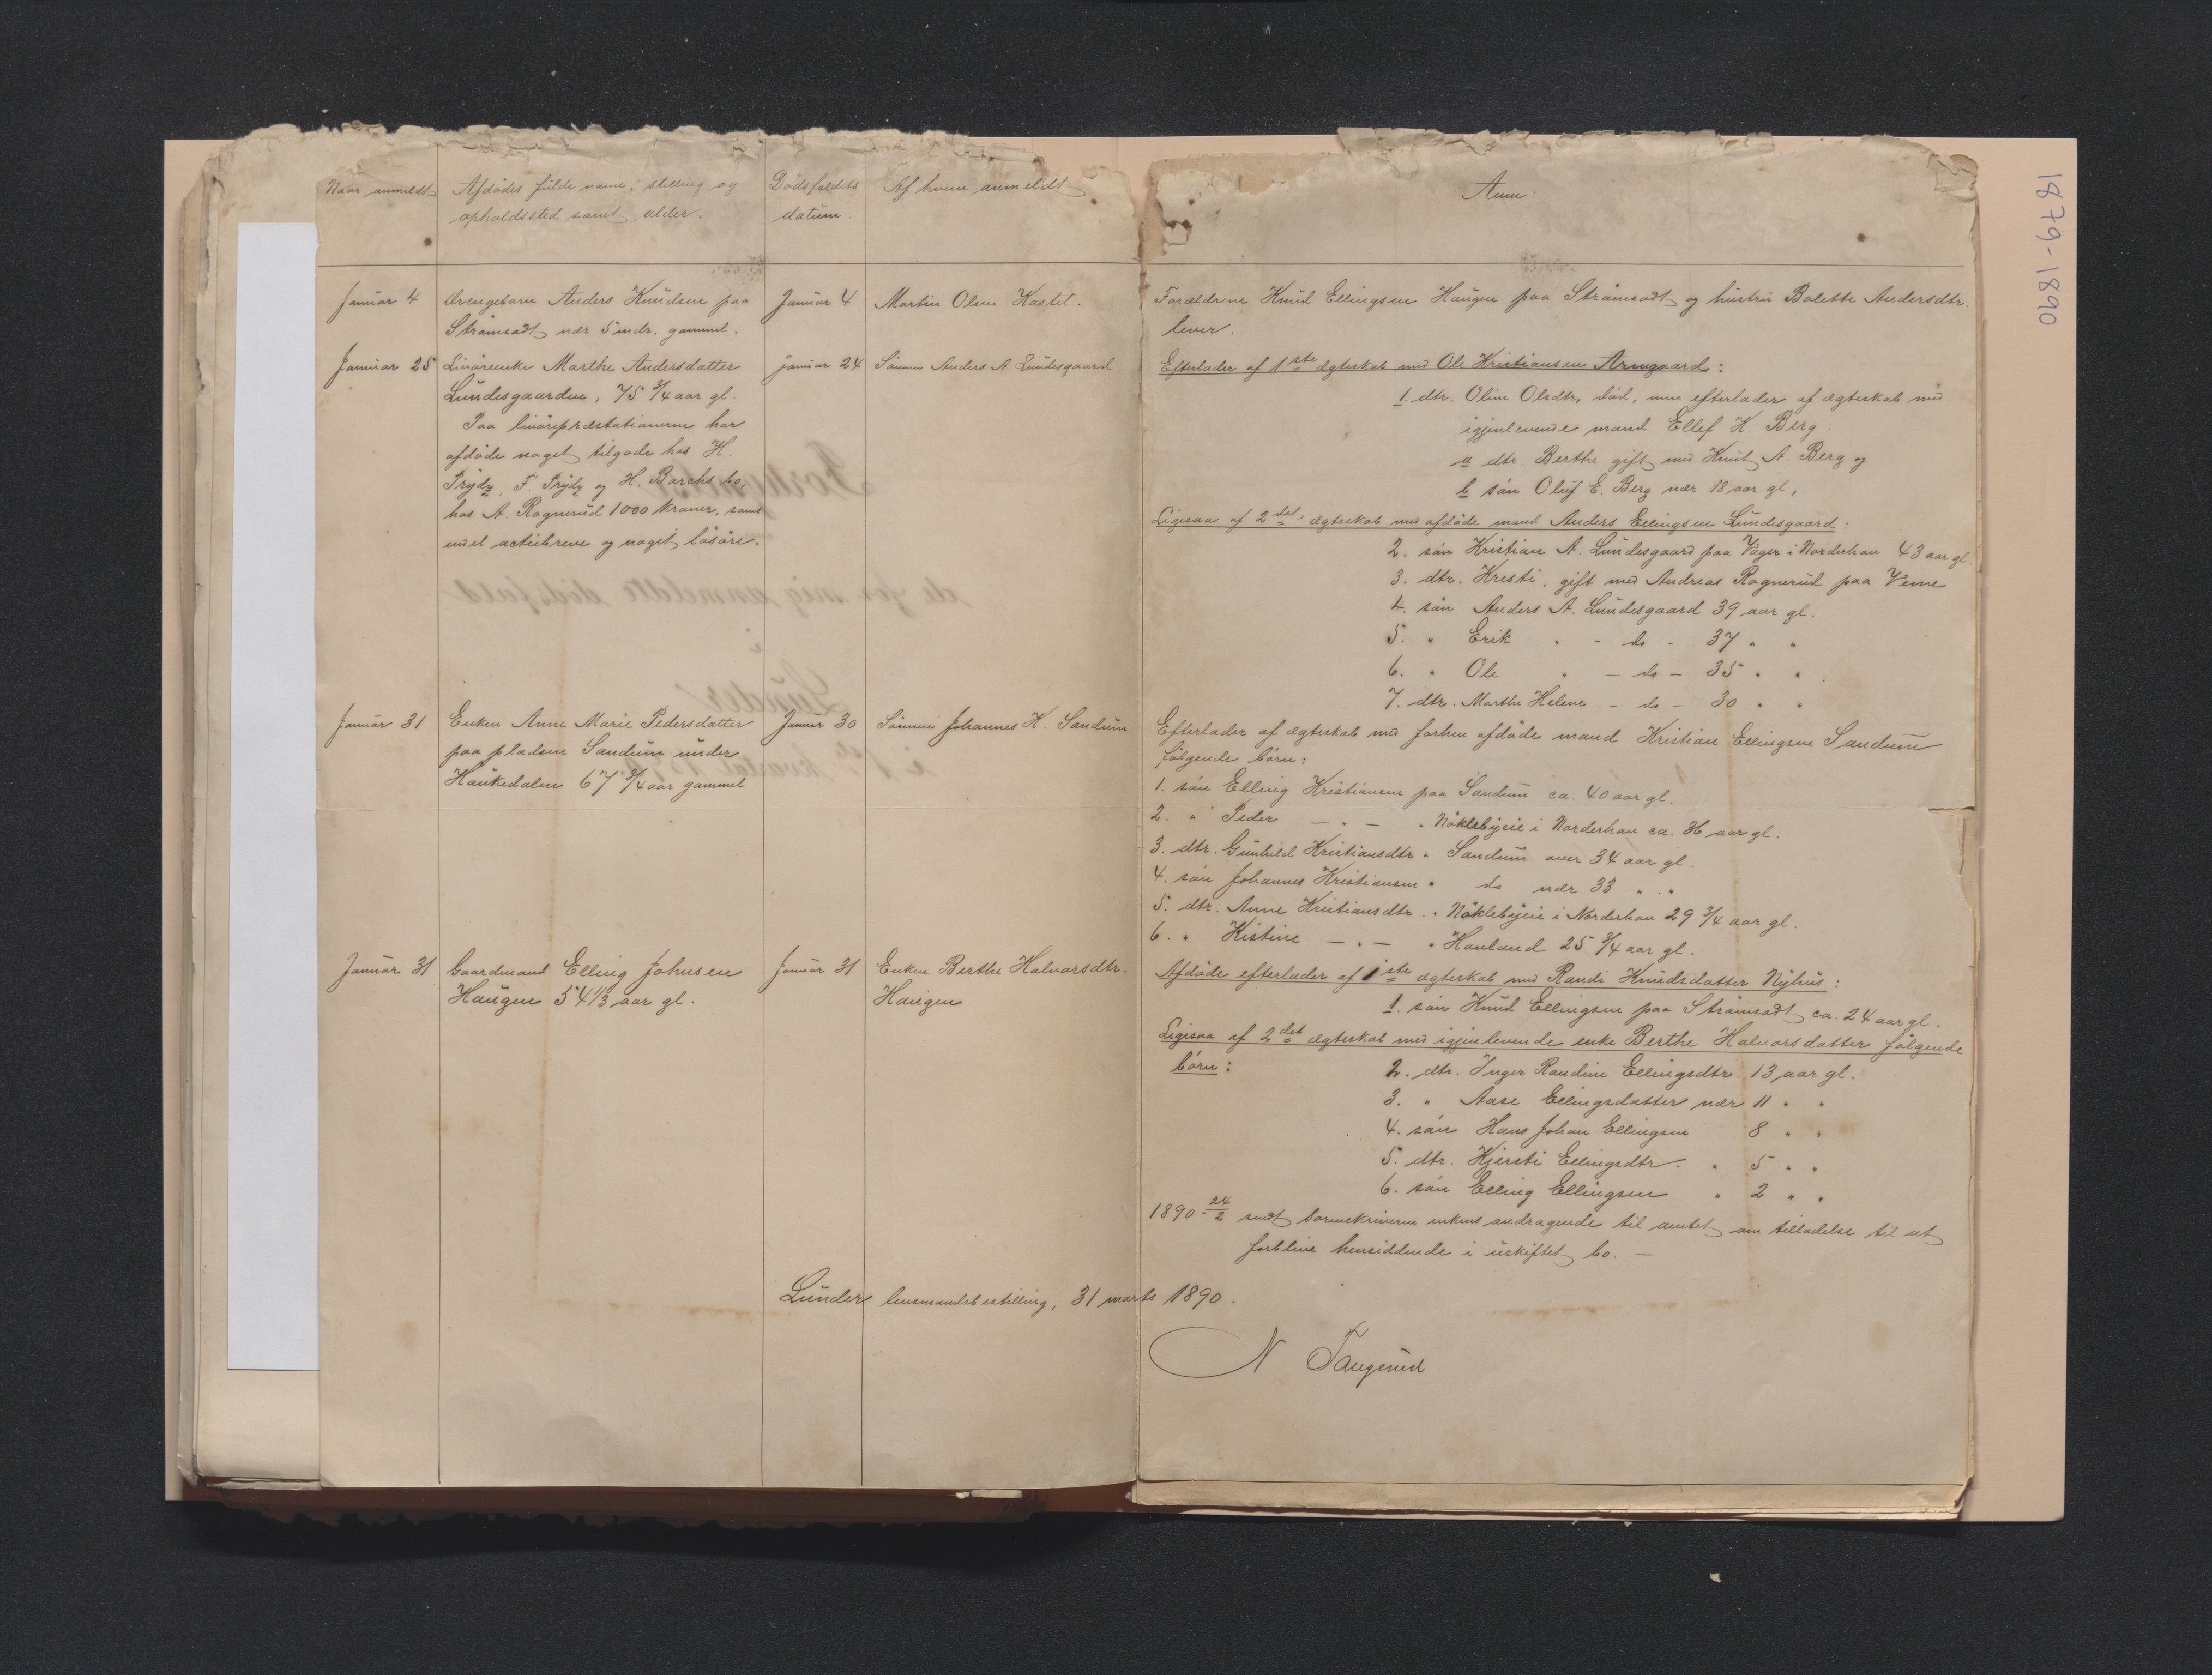 Naar anmeldt
Afdödes fulde navn, stilling og
opholdssted samt alder.
Dödsfaldets
datum
Af hvem anmeldt
Anm:
Januar 4
Drengebarn Anders Knudsen paa
Strömsodt nær 5 mdr. gammel.
Januar 4
Martin Olsen Kastel.
Forældrene Knud Ellingsen Haugen paa Strömsodt og hustru Bolette Andersdtr.
lever.
Januar 25
Livöreenke Marthe Andersdatter
Lundesgaarden, 75 3/4 aar gl.
Paa livörepræstationerne har
afdöde noget tilgode hos H.
Prydz, F. Prydz og H. Borchs bo,
hos A. Rognerud 1000 kroner, samt
endel actiebreve og noget lösöre.
januar 24
Sönnen Anders A. Lundesgaard
Efterlader af 1ste ægteskab med Ole Kristiansen Arnegaard:
1 dtr. Oline Olsdtr, död, men efterlader af ægteskab med
igjenlevende mand Ellef K. Berg:
a dtr. Berthe gift med Knut A. Berg og
b sön Oluf E. Berg nær 18 aar gl,
Ligesaa af 2det ægteskab med afdöde mand Anders Ellingsen Lundesgaard:
2. sön Kristian A. Lundesgaard paa Vager i Norderhov 43 aar gl.
3. dtr. Kresti, gift med Andreas Rognerud paa Veme
4. sön Anders A. Lundesgaard 39 aar gl.
5. " Erik " - do - 37 " "
6. " Ole " - do - 35 " "
7. dtr. Marthe Helene - do - 30 " "
Januar 31
Enken Anne Marie Pedersdatter
paa pladsen Sandum under
Haukedalen 67 3/4 aar gammel
Januar 30
Sönnen Johannes K. Sandum
Efterlader af ægteskab med forhen afdöde mand Kristian Ellingsen Sandum
fölgende börn:
1. sön Elling Kristiansen paa Sandum ca. 40 aar gl.
2. " Peder - " - " Nöklebyeie i Norderhov ca. 36 aar gl.
3. dtr. Gunhild Kristiansdtr " Sandum over 34 aar gl.
4. sön Johannes Kristiansen " do nær 33 " "
5. dtr. Anne Kristiansdtr. " Nöklebyeie i Norderhov 29 3/4 aar gl.
6. " Kistine - " - " Hovland 25 3/4 aar gl.
Januar 31
Gaardmand Elling Johnsen
Haugen 54 1/3 aar gl.
Januar 31
Enken Berthe Halvorsdtr.
Haugen
Afdöde efterlader af 1ste ægteskab med Randi Knudsdatter Nyhus:
1. sön Knud Ellingsen paa Strömsodt ca. 24 aar gl.
Ligesaa af 2det ægteskab med igjenlevende enke Berthe Halvorsdatter fölgende
börn:
2. dtr. Inger Randine Ellingsdtr. 13 aar gl.
3. " Aase Ellingsdatter nær 11 " "
4. sön Hans Johan Ellingsen 8 " "
5. dtr. Kjersti Ellingsdtr. " 5 " "
6. sön Elling Ellingsen " 2 " "
1890 24/2 sendt sorenskriveren enkens andragende til amtet om tilladelse til at
forblive hensiddende i uskiftet bo. —
Lunder lensmandsbestilling, 31 marts 1890.
N Tangerud
1879-1890